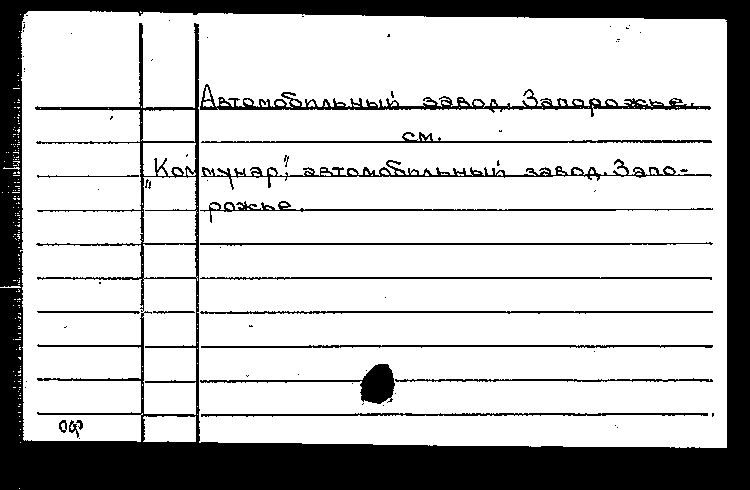 Автомобильный завод. Запорожье.
см.
„Коммунар", автомобильный завод. Запо-
рожье.